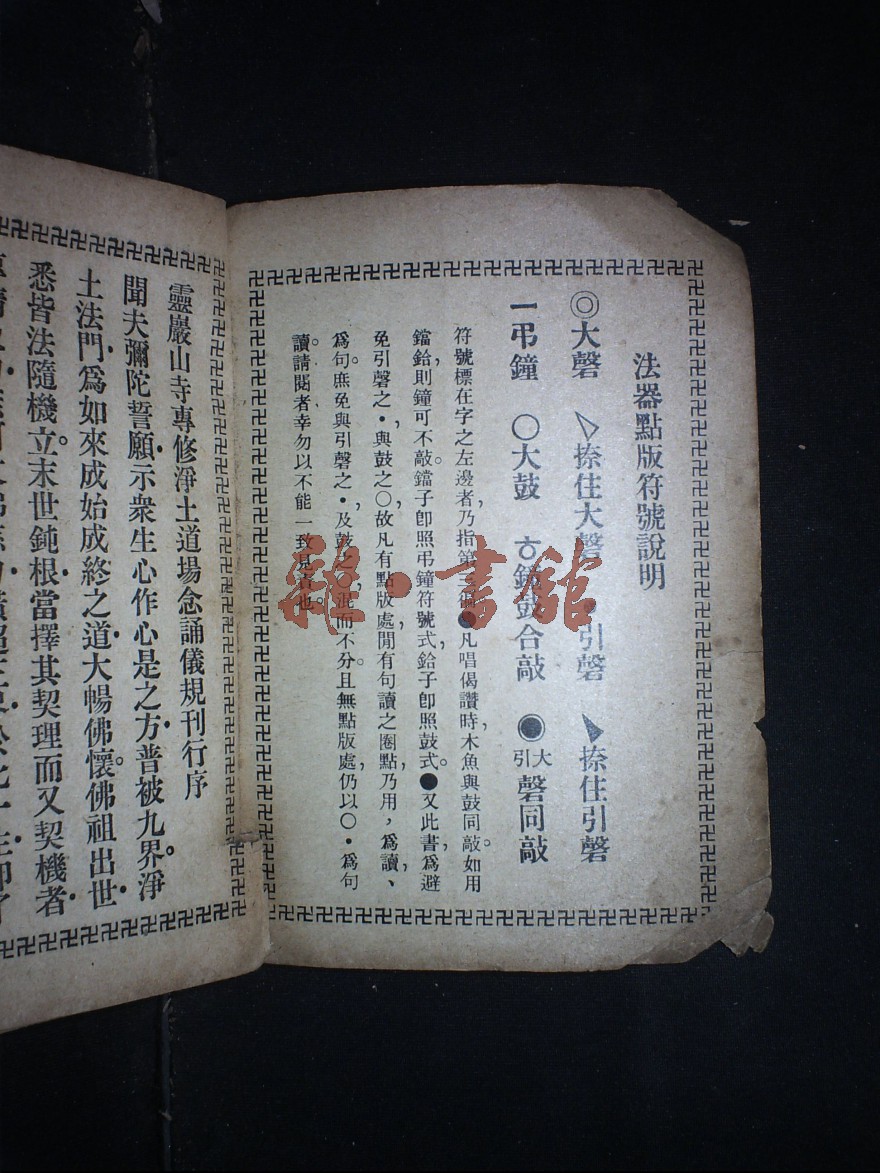 法器點版符號說明
◎大磬　捺住大磬　•引磬　捺住引磬
一弔鐘　〇大鼓　鐘鼓合敲　●大引磬同敲
符號標在字之左邊者，乃指第　凡唱偈讚時，木魚與鼓同敲。如用
鐺鉿，則鐘可不敲。鐺子卽照弔鐘符號式，鉿子卽照鼓式。●又此書，爲避
免引磬之•，與鼓之〇，故凡有點版處，閒有句讀之圈點，乃用，爲讀、
爲句。庶免與引磬之•，及鼓之〇，混而不分。且無點版處，仍以〇•爲句
讀。請閱者幸勿以不能一致見　也。
靈巖山寺專修淨土道場念誦儀規刊行序
聞夫彌陀誓願•示衆生心作心是之方•普被九界。淨
土法門•爲如來成始成終之道•大暢佛懷。佛祖出世•
悉皆法隨機立。末世鈍根•當擇其契理而又契機者•
雜•書館